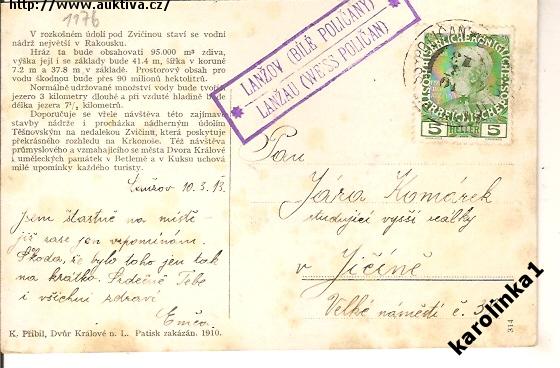 http://www.auktiva.cz/
1176
V rozkošném údolí pod Zvičinou staví se vodní
nádrž největší v Rakousku.
Hráz ta bude obsahovati 95.000 m³ zdiva,
výška její i se základy bude 41.4 m, šířka v koruně
7.2 m a 37.8 m v základě. Prostorový obsah pro
vodu škodnou bude přes 90 milionů hektolitrů.
Normálně udržované množství vody bude tvořiti
jezero 3 kilometry dlouhé a při vzduté hladině bude
délka jezera 7½ kilometru.
Doporučuje se vřele návštěva této zajímavé
stavby nádrže i procházka nádherným údolím
Těšnovským na nedalekou Zvičinu, která poskytuje
překrásného rozhledu na Krkonoše. Též návštěva
průmyslového a vzmahajícího se města Dvora Králové
i uměleckých památek v Betlemě a v Kuksu uchová
milé upomínky každého turisty.
10.3.13.
Jsem šťastně na místě -
již zase jen vzpomínám.
Škoda, že bylo toho jen tak
na krátko. Srdečně Tebe
i všechny zdraví
K. Přibil, Dvůr Králové n. L. Patisk zakázán. 1910.
LANŽOV (BÍLÉ POLIČANY)
LANŽAU (WEISS POLIČAN)
5 HELLER 5
Pan
Jára Komárek
studující vyšší reálky
v Jičíně
Velké náměstí č.
314
karolinka1